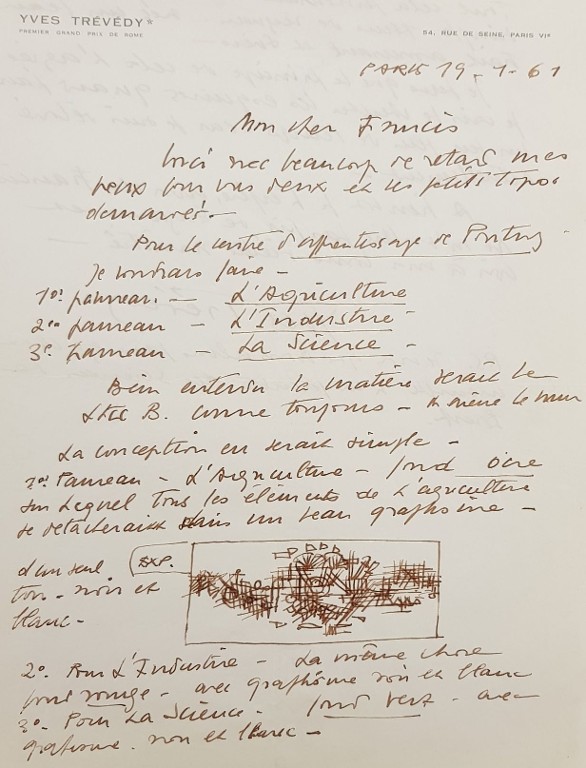 YVES TRÉVÉDY*
PREMIER GRAND PRIX DE ROME
54, RUE DE SEINE, PARIS VIe
PARIS 19-1-61
Mon cher Francis
Voici avec beaucoup de retard mes
vœux pour vous deux et les petits topos
demandés.-
Pour le centre d'apprentissage de
Je voudrais faire -
1er panneau. - L'Agriculture
2em panneau - L'Industrie -
3e. panneau - La Science -
Bien entendu la matière serait le
B. comme toujours - à même le mur
La conception en serait simple -
1er Panneau - L'Agriculture - fond ocre
sur lequel tous les éléments de L'agriculture
se détacheraient dans un beau graphisme -
d'un seul
ton - noir et
blanc -
EXP.
2o. Pour L'Industrie - La même chose
fond rouge - avec graphisme noir et blanc
3o. Pour La Science - fond vert - avec
grafisme. noir et blanc -